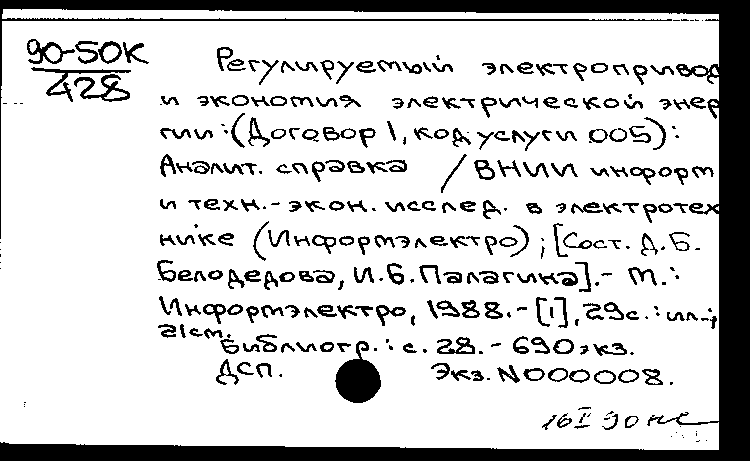 90-50К
428
Регулируемый электропривод
и экономия электрической энер
гии: (Договор 1, код услуги 005):
Аналит. справка / ВНИИ информ
и техн.-экон. исслед. в электротех
нике (Информэлектро); [Сост. Д.Б.
Белодедова, И.Б. Палагина]. - М.:
Информэлектро, 1988. - [1], 29с.: ил.;
21см.
Библиогр.: с. 28. - 690 экз.
ДСП. Экз. N000008.
16 I 90